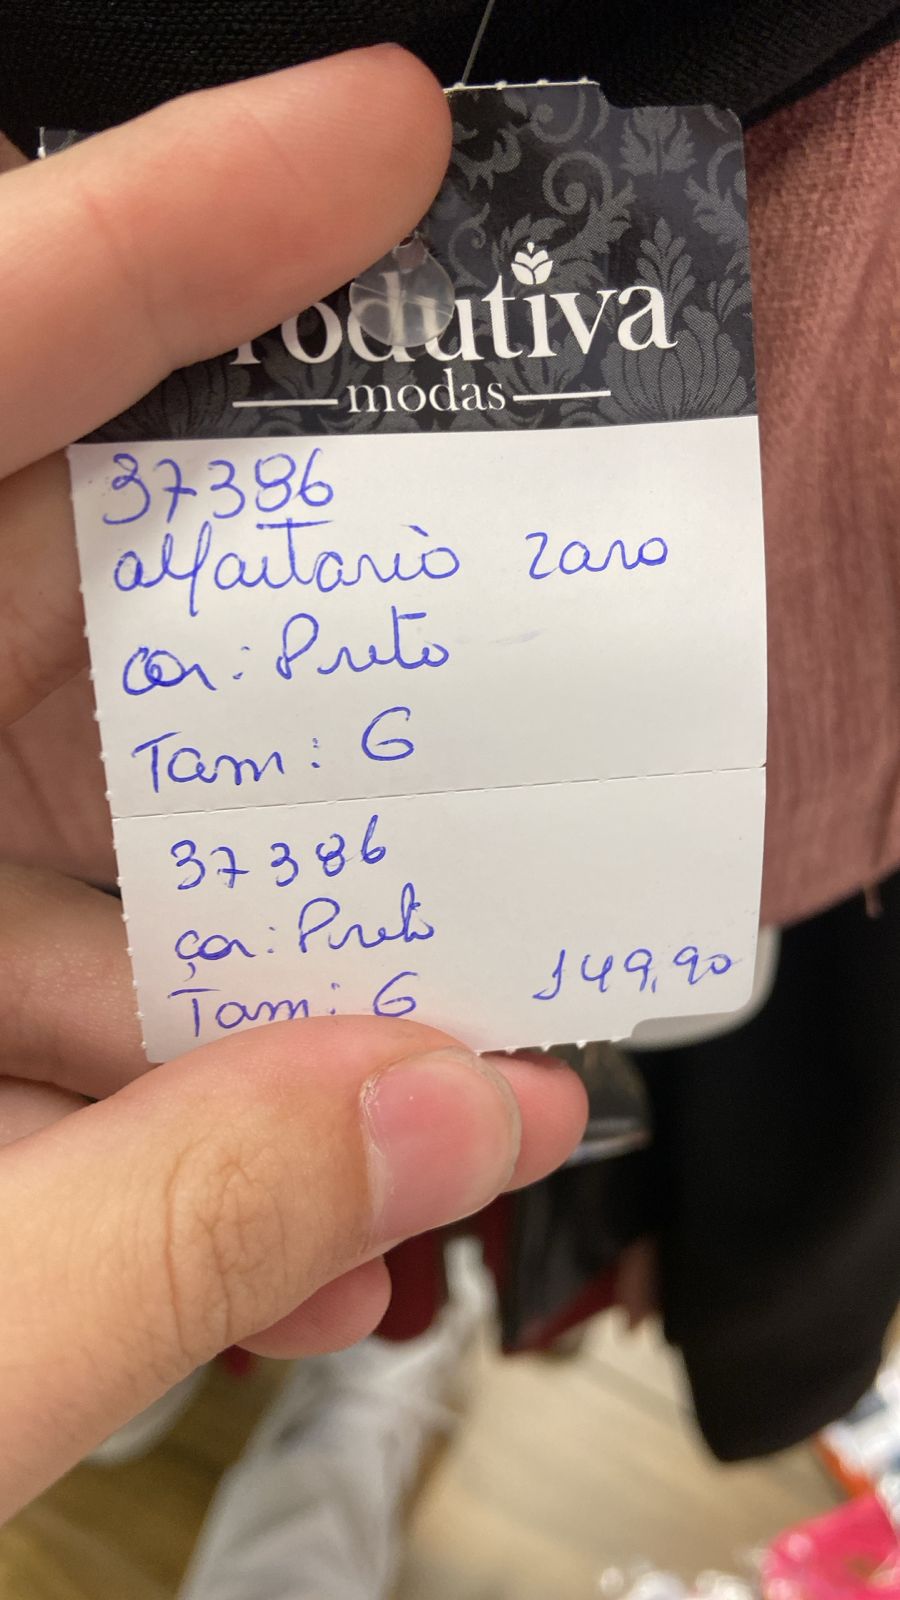 rodutiva
modas
37386
alfaitario zara
cor: Preto
Tam: G
37386
cor: Preto
Tam: G 149,90